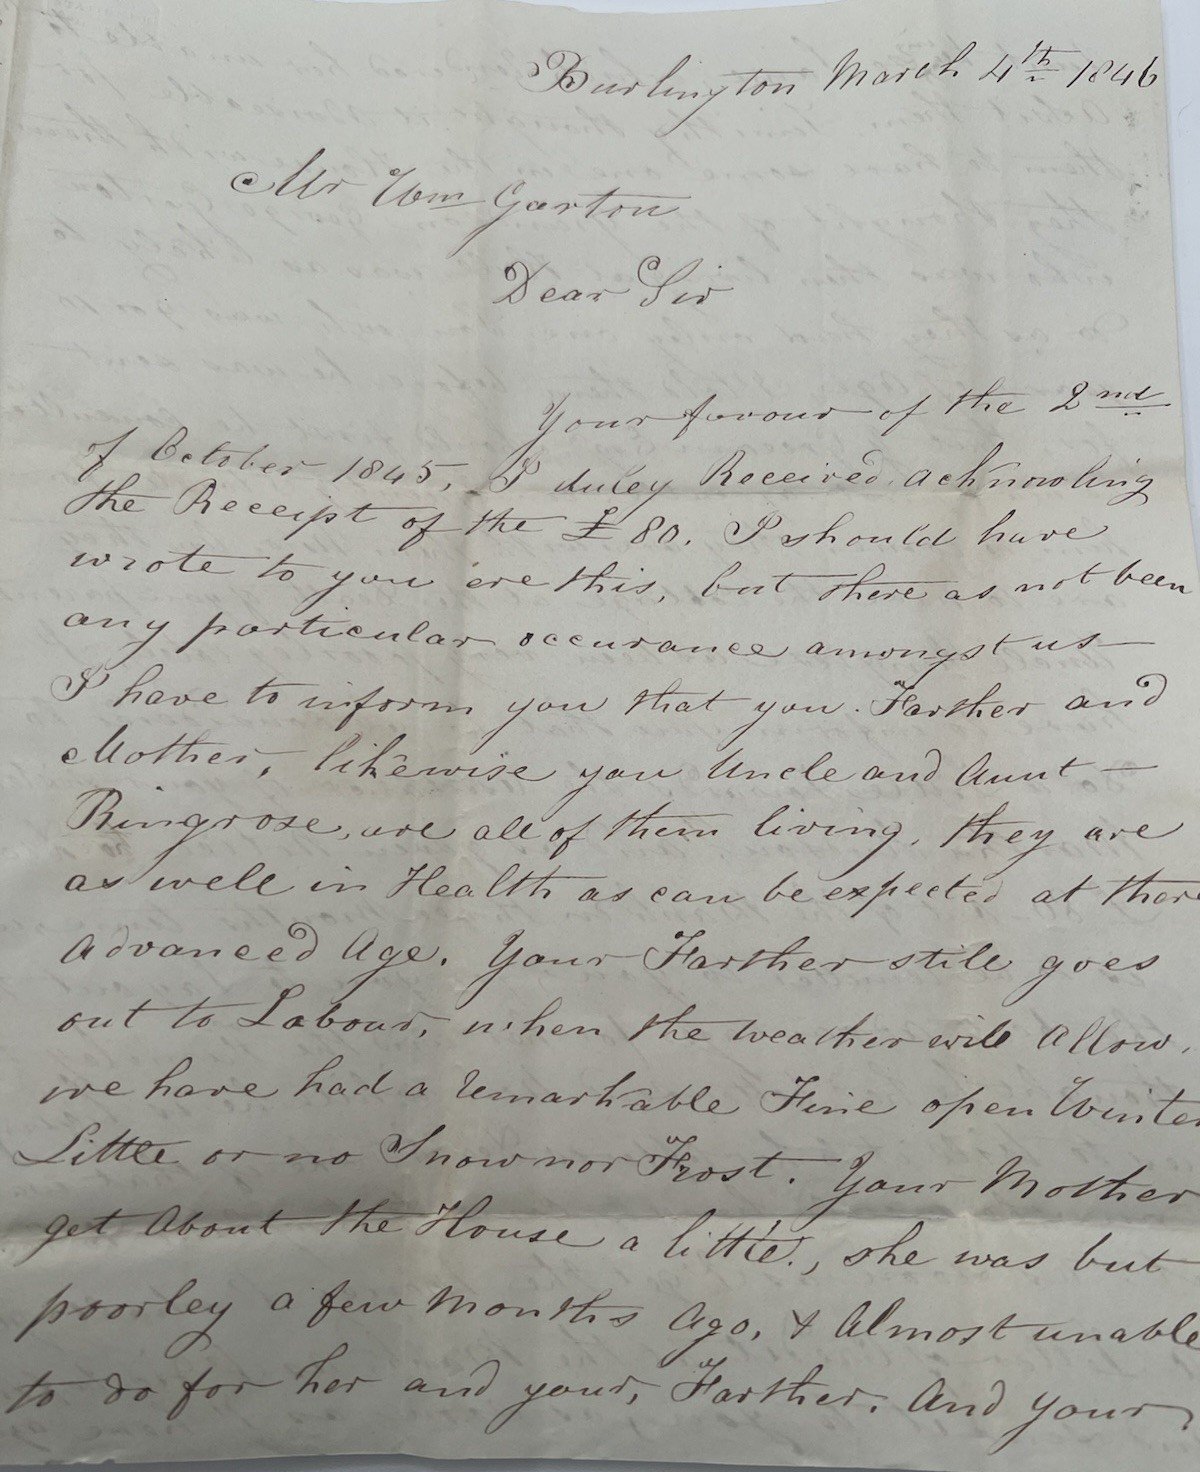 Burlington March 4th 1846
Mr Wm Garton
Dear Sir
Your favour of the 2nd
of October 1845, I duley Received, acknowling
the Receipt of the £80. I should have
wrote to you ere this, but there as not been
any particular occurance amongst us—
I have to inform you that you. Farther and
Mother, likewise you Uncle and Aunt—
Ringrose, are all of them living, they are
as well in Health as can be expected at there
Advanced Age. Your Farther still goes
out to Labour, when the weather will Allow.
we have had a Remarkable Fine open Winter
Little or no Snow nor Frost. Your Mother
get About the House a little, she was but
poorley a few Months Ago, & Almost unable
to do for her and your, Farther. And your